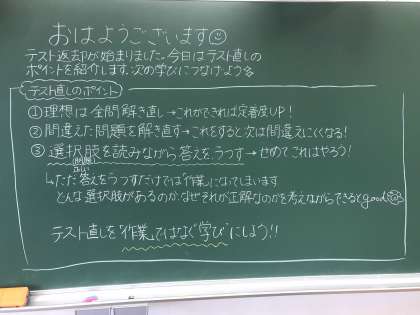 おはようございます
テスト返却が始まりました。今日はテスト直しの
ポイントを紹介します。次の学びにつなげような
テスト直しのポイント
①理想は全問解き直し→これができれば定着度UP！
②間違えた問題を解き直す→これをすると次は間違えにくくなる！
③選択肢を読みながら答えをうつす→せめてこれはやろう！
問題
正しい
↳ただ答えをうつすだけでは「作業」になってしまいます
どんな選択肢があるのか、なぜそれが正解なのかを考えながらできるとgood
テスト直しを“作業”ではなく“学び”にしよう!!